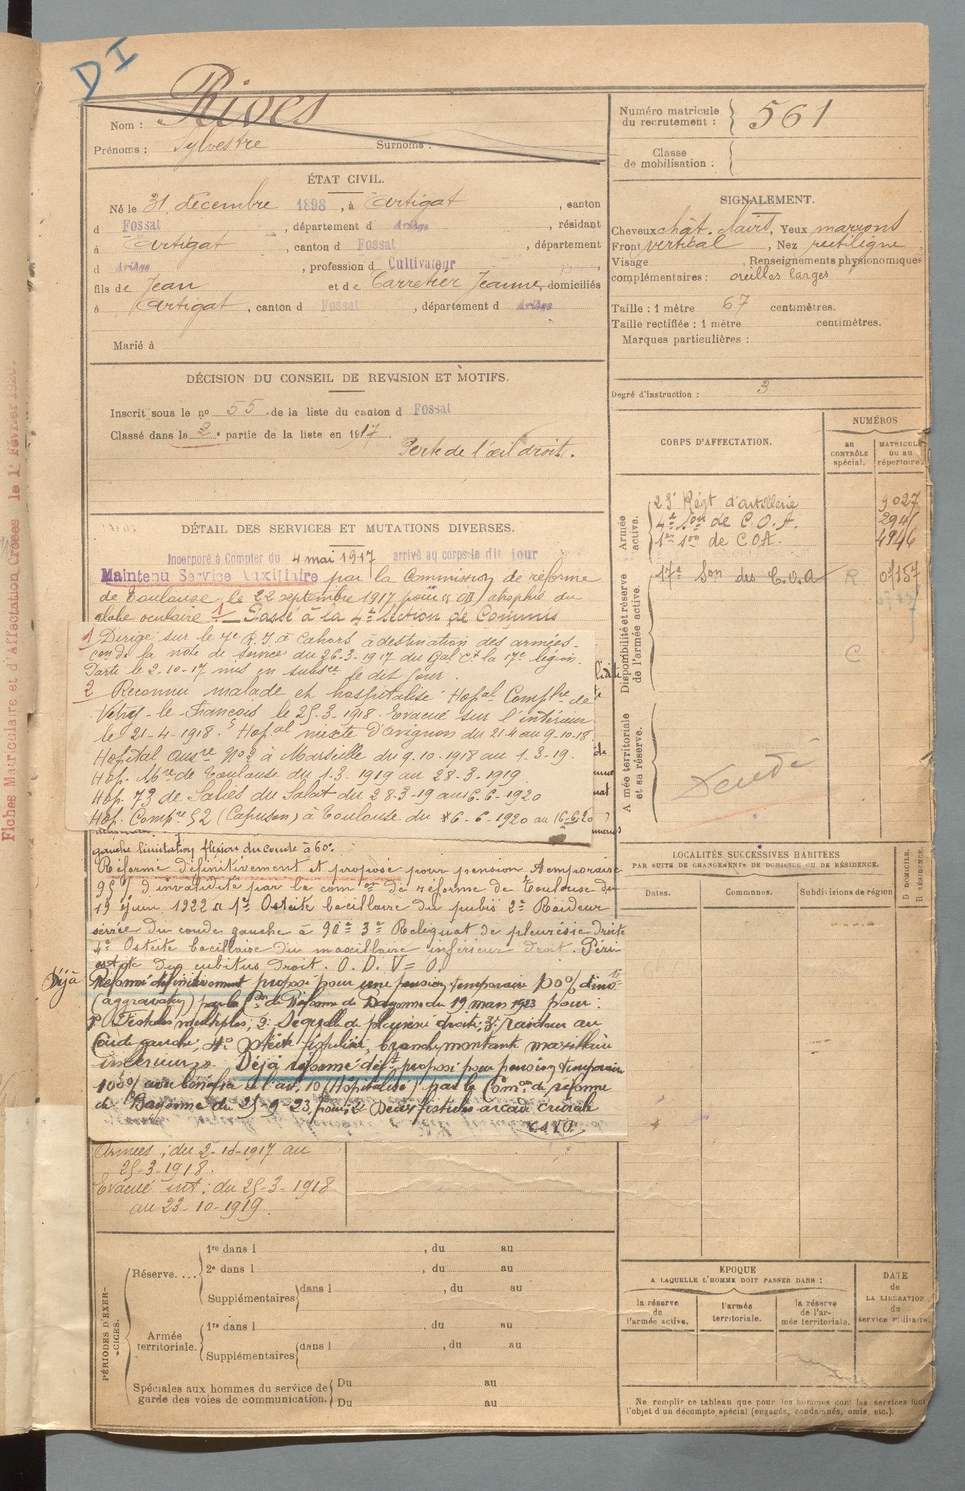 DI
Nom : Rives
Prénoms : Sylvestre Surnoms :
Numéro matricule du recrutement : 561
Classe de mobilisation :
ÉTAT CIVIL.
Né le 31 décembre 1898, à Artigat, canton
d Fossat, département d Ariège, résidant
à Artigat, canton d Fossat, département
d Ariège, profession d Cultivateur
fils de Jean et de Carretier Jeanne, domiciliés
à Artigat, canton d Fossat, département d Ariège
Marié à
SIGNALEMENT.
Cheveux chât. clairs, Yeux marrons
Front vertical, Nez rectiligne
Visage , Renseignements physionomiques
complémentaires : oreilles larges
Taille : 1 mètre 67 centimètres.
Taille rectifiée : 1 mètre centimètres.
Marques particulières :
Degré d'instruction : 3
DÉCISION DU CONSEIL DE REVISION ET MOTIFS.
Inscrit sous le no 55 de la liste du canton d Fossat
Classé dans la 2e partie de la liste en 1917
Perte de l'œil droit.
DÉTAIL DES SERVICES ET MUTATIONS DIVERSES.
Incorporé à Compter du 4 mai 1917 arrivé au corps le dit jour
Maintenu Service Auxiliaire par la Commission de réforme
de Toulouse le 22 septembre 1917 pour OD atrophie du
globe oculaire 1 Passé à la 4e section de Commis
1 Dirigé sur le 7e R.I à Cahors à destination des armées.
con de la note de service du 26-3-1917 du Gal Ct la 17e légion.
Parti le 2-10-17 mis en subsce le dit jour.
2 Reconnu malade et hospitalisé Hopal Compre de
Vitry-le-François le 25-3-1918. Evacué sur l'intérieur
le 21-4-1918. Hopal mixte d'Avignon du 21-4 au 9-10-18
Hopital auxre No 2 à Marseille du 9-10-1918 au 1-3-19.
Hop. Mre de Toulouse du 1-3-1919 au 28-3-1919
Hop. 73 de Salies du Salat du 28-3-19 au 6-6-1920
Hop. Compre 52 (Capuson) à Toulouse du 6-6-1920 au 16-6-20
gauche limitation flexion du coude à 60°
Réformé définitivement et proposé pour pension temporaire
90% d'invalidité par la comon de réforme de Toulouse du
19 Juin 1922 1° Ostéite bacillaire du pubis 2° Raideur
serrée du coude gauche à 90° 3° Reliquat de pleurésie droite
4° Ostéite bacillaire du maxillaire inférieur droit. Péri-
ostéite du cubitus droit. O. D. V = 0.
Déjà Réformé définitivement proposé pour une pension temporaire 100% d'invté
(aggravation) par la Con de Réforme de Bayonne du 19 mars 1923 pour :
1° Fistules multiples, 2° Séquelle de pleurésie droite, 3° raideur au
Coude gauche, 4° ostéite fistulisée, branche montant maxillaire
inférieur. Déjà réformé déft proposé pour pension temporaire
100% avec bénéfice de l'art. 10 (Hôpitalisé) par la Comon de réforme
de Bayonne du 25-9-23 pour: 2 Deux fistules arcade crurale
Armées ; du 2-10-1917 au
25-3-1918.
Evacué int : du 25-3-1918
au 23-10-1919.
CORPS D'AFFECTATION.
NUMÉROS
au CONTRÔLE spécial.
MATRICULE ou au répertoire.
Armée active.
23e Régt d'artillerie 9027
4e Son de C.O.A. 2941
1ère Son de COA. 4946
Disponibilité et réserve de l'armée active.
17e Son des C.O.A R 01157
C
Armée territoriale et sa réserve.
LOCALITÉS SUCCESSIVES HABITÉES
PAR SUITE DE CHANGEMENTS DE DOMICILE OU DE RÉSIDENCE.
Dates. Communes. Subdivisions de région
D DOMICILE. R RÉSIDENCE.
PÉRIODES D'EXERCICES.
Réserve....
1re dans l , du au
2e dans l , du au
Supplémentaires dans l , du au
Armée territoriale.
1re dans l , du au
Supplémentaires dans l , du au
Spéciales aux hommes du service de garde des voies de communication.
Du au
Du au
ÉPOQUE
A LAQUELLE L'HOMME DOIT PASSER DANS :
la réserve de l'armée active.
l'armée territoriale.
la réserve de l'armée territoriale.
DATE de LA LIBÉRATION du service militaire.
Ne remplir ce tableau que pour les hommes dont les services font
l'objet d'un décompte spécial (engagés, condamnés, omis, etc.).
Fiches Matriculaire et d'Affectation Créées le 1er Février 1920.